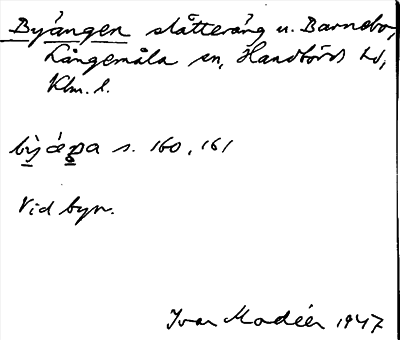 Byängen slåtteräng u. Barnebo,
Långemåla sn, Handbörds hd,
Klm. l.
s. 160, 161
Vid byn.
Ivar Modéer 1947